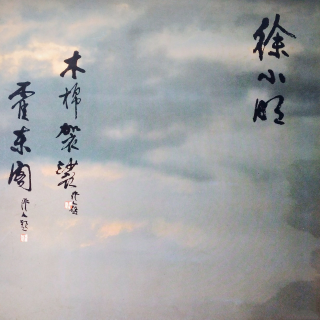 徐小明
木棉袈裟
霍東閣